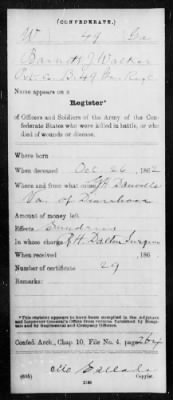 (CONFEDERATE.)
W 49 Ga
Barnett J Walker
Pvt Co B, 49 Ga Regt
Name appears on a
Register*
of Officers and Soldiers of the Army of the Confederate States who were killed in battle, or who died of wounds or disease.
Where born
When deceased Oct 26, 1862
Where and from what cause Danville
Va. of Diarrhoea
Amount of money left
Effects Sundries
In whose charge Surgeon
When received , 186
Number of certificate 29
Remarks:
*This register appears to have been compiled in the Adjutant and Inspector General's Office from returns furnished by Hospitals and by Regimental and Company Officers.
Confed. Arch., Chap. 10, File No. 4, page 264
(635)
Copyist.